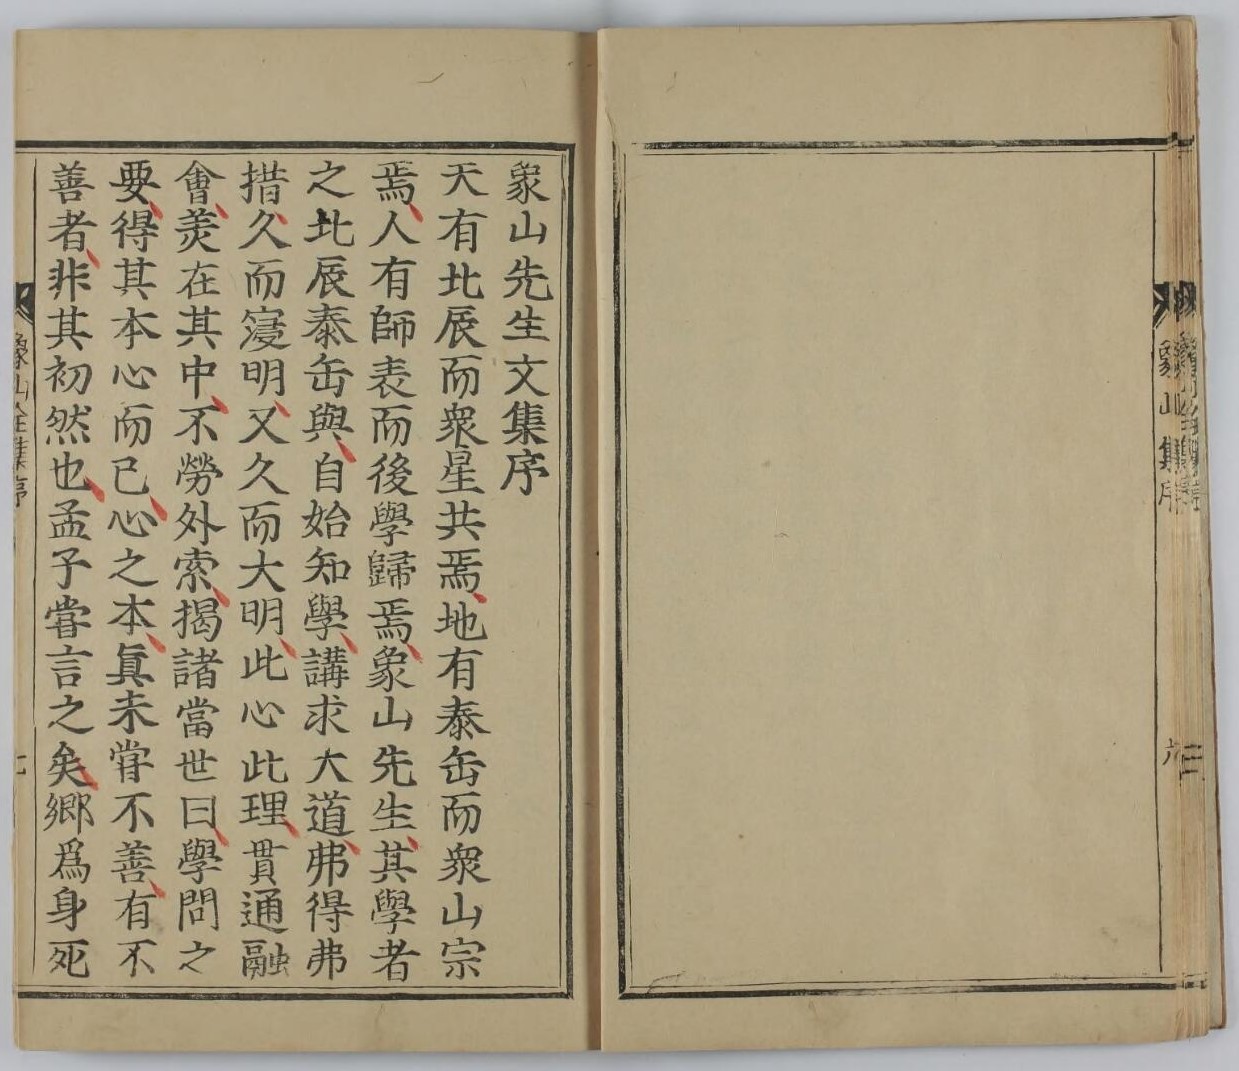 象山集序
六
象山先生文集序
天有北辰而衆星共焉地有泰岳而衆山宗
焉人有師表而後學歸焉象山先生其學者
之北辰泰岳與自始知學講求大道弗得弗
措久而寖明又久而大明此心此理貫通融
會羙在其中不勞外索揭諸當世曰學問之
要得其本心而已心之本真未甞不善有不
善者非其初然也孟子甞言之矣鄉爲身死
象山全集序
七